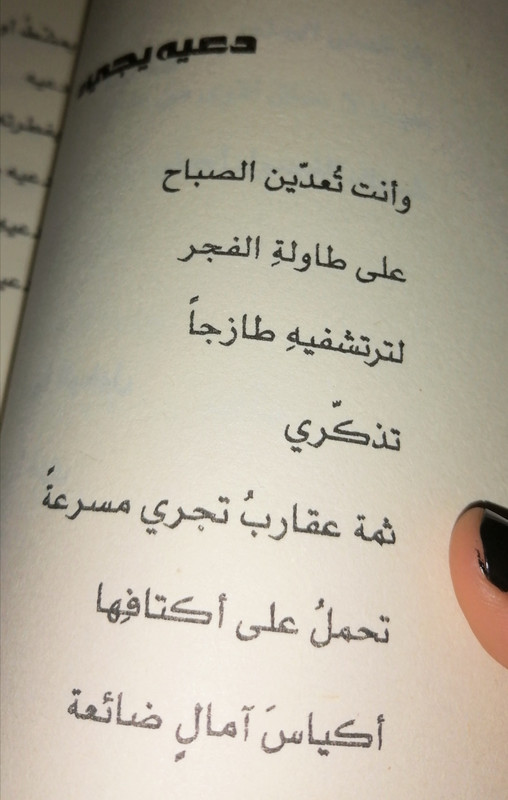 دعيه يجيء
وأنت تُعدّين الصباح
على طاولةِ الفجر
لترتشفيهِ طازجاً
تذكّري
ثمة عقاربُ تجري مسرعةً
تحملُ على أكتافِها
أكياسَ آمالٍ ضائعة